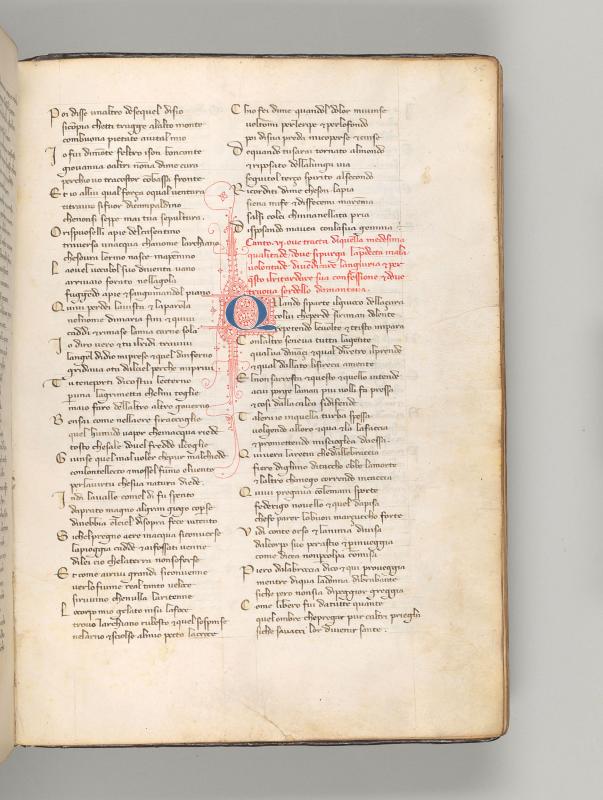 Poi disse unaltro desequel disio
sicōpia chetti tragge alalto monte
combuona pietate aiutal mio
Io fui dimōte feltro ison bonconte
giovanna oaltri nōna dime cura
perchio vo tracostor cobassa fronte
Et io allui qual força oqual ventura
titravio sifuor dicampaldino
chenonsi seppe mai tua sepultura
Orispuoselli apie delcasentino
traversa unacqua chanome larchiano
chesovra lermo nasce inapennino
Laovel vocabol suo diventa vano
arrivaio forato nellagola
fugēdo apie 7 sanguinandol piano
Quivi perdei lavista 7 laparola
nelnome dimaria fini 7 quivi
caddi 7 rimase lamia carne sola
Io diro vero 7 tu ilridi travivi
langel didio miprese 7quel dinferno
gridava otu dalciel perche miprivi
Tu teneporti dicostui leeterno
p̄una lagrimetta chelmi toglie
maio faro dellaltro altro governo
Bensai come nellaere siraccoglie
quel humido vapor cheinacqua riede
tosto chesale dovel freddo ilcoglie
Giunse quel mal voler chepur malchiede
conlontellecto 7 mossel fumo oluento
perlavirtu chesua natura diede
Indi lavalle comel di fu spento
dapratomagno algran giogo coperse
dinebbia elciel disopra fece intento
Sichelpregno aere inacqua siconverse
lapioggia cadde 7 aifossati venne
dilei cio chelaterra nonsoferse
Et come airivi grandi siconvenne
verlo fiume real tanto veloce
siruvino chenulla laritenne
Locorpo mio gelato insu lafoce
trovo larchiano rubesto 7 quel sospinse
nelarno 7 sciolse almio petto lacroce
Chio fei dime quandol dolor mivinse
voltōmi perleripe 7 perlofondo
poi disua preda micoperse 7 cinse
Dequando tusarai tornato almondo
7 riposato dellalunga via
seguitol terço spirito alsecondo
Ricorditi dime cheson lapia
siena mife 7 disfecemi marema
salsi colei chinnanellata pria
Disposando mavea conlasua gemma
Canto vj. ove tracta diquella medesima
qualitade
QUando siparte ilgiuoco dellaçara
colui cheperde siriman dolente
repetendo levolte 7 tristo impara
Conlaltro seneva tutta lagente
qualva dināçi 7 qual diretro ilprende
7 qual dallato lisireca amente
El nonsarresta 7 questo 7 quello intende
acui porge laman piu nolli fa pressa
7 cosi dallacalca sidifende
Talero io inquella turba spessa
volgendo alloro 7 qua 7 la lafaccia
7 promettendo misciogliea daessa
Quivera laretin chedallebraccia
fiere dighino ditaccho ebbe lamorte
7 laltro channego correndo incaccia
Quivi pregava colemani sporte
federigo novello 7 quel dapisa
chefe parer lobuon marçucho forte
Vidi conte orso 7 lanima divisa
dalcorpo suo perastio 7 p̄inveggia
come dicea nonpcolpa comisa
Piero dalabroccia dico 7 qui proveggia
mentre diqua ladonna dibrabante
siche pero nonsia dipeggior greggia
Come libero fui datutte quante
quel ombre chepregar pur caltri prieghi
siche savacci lor divenir sante